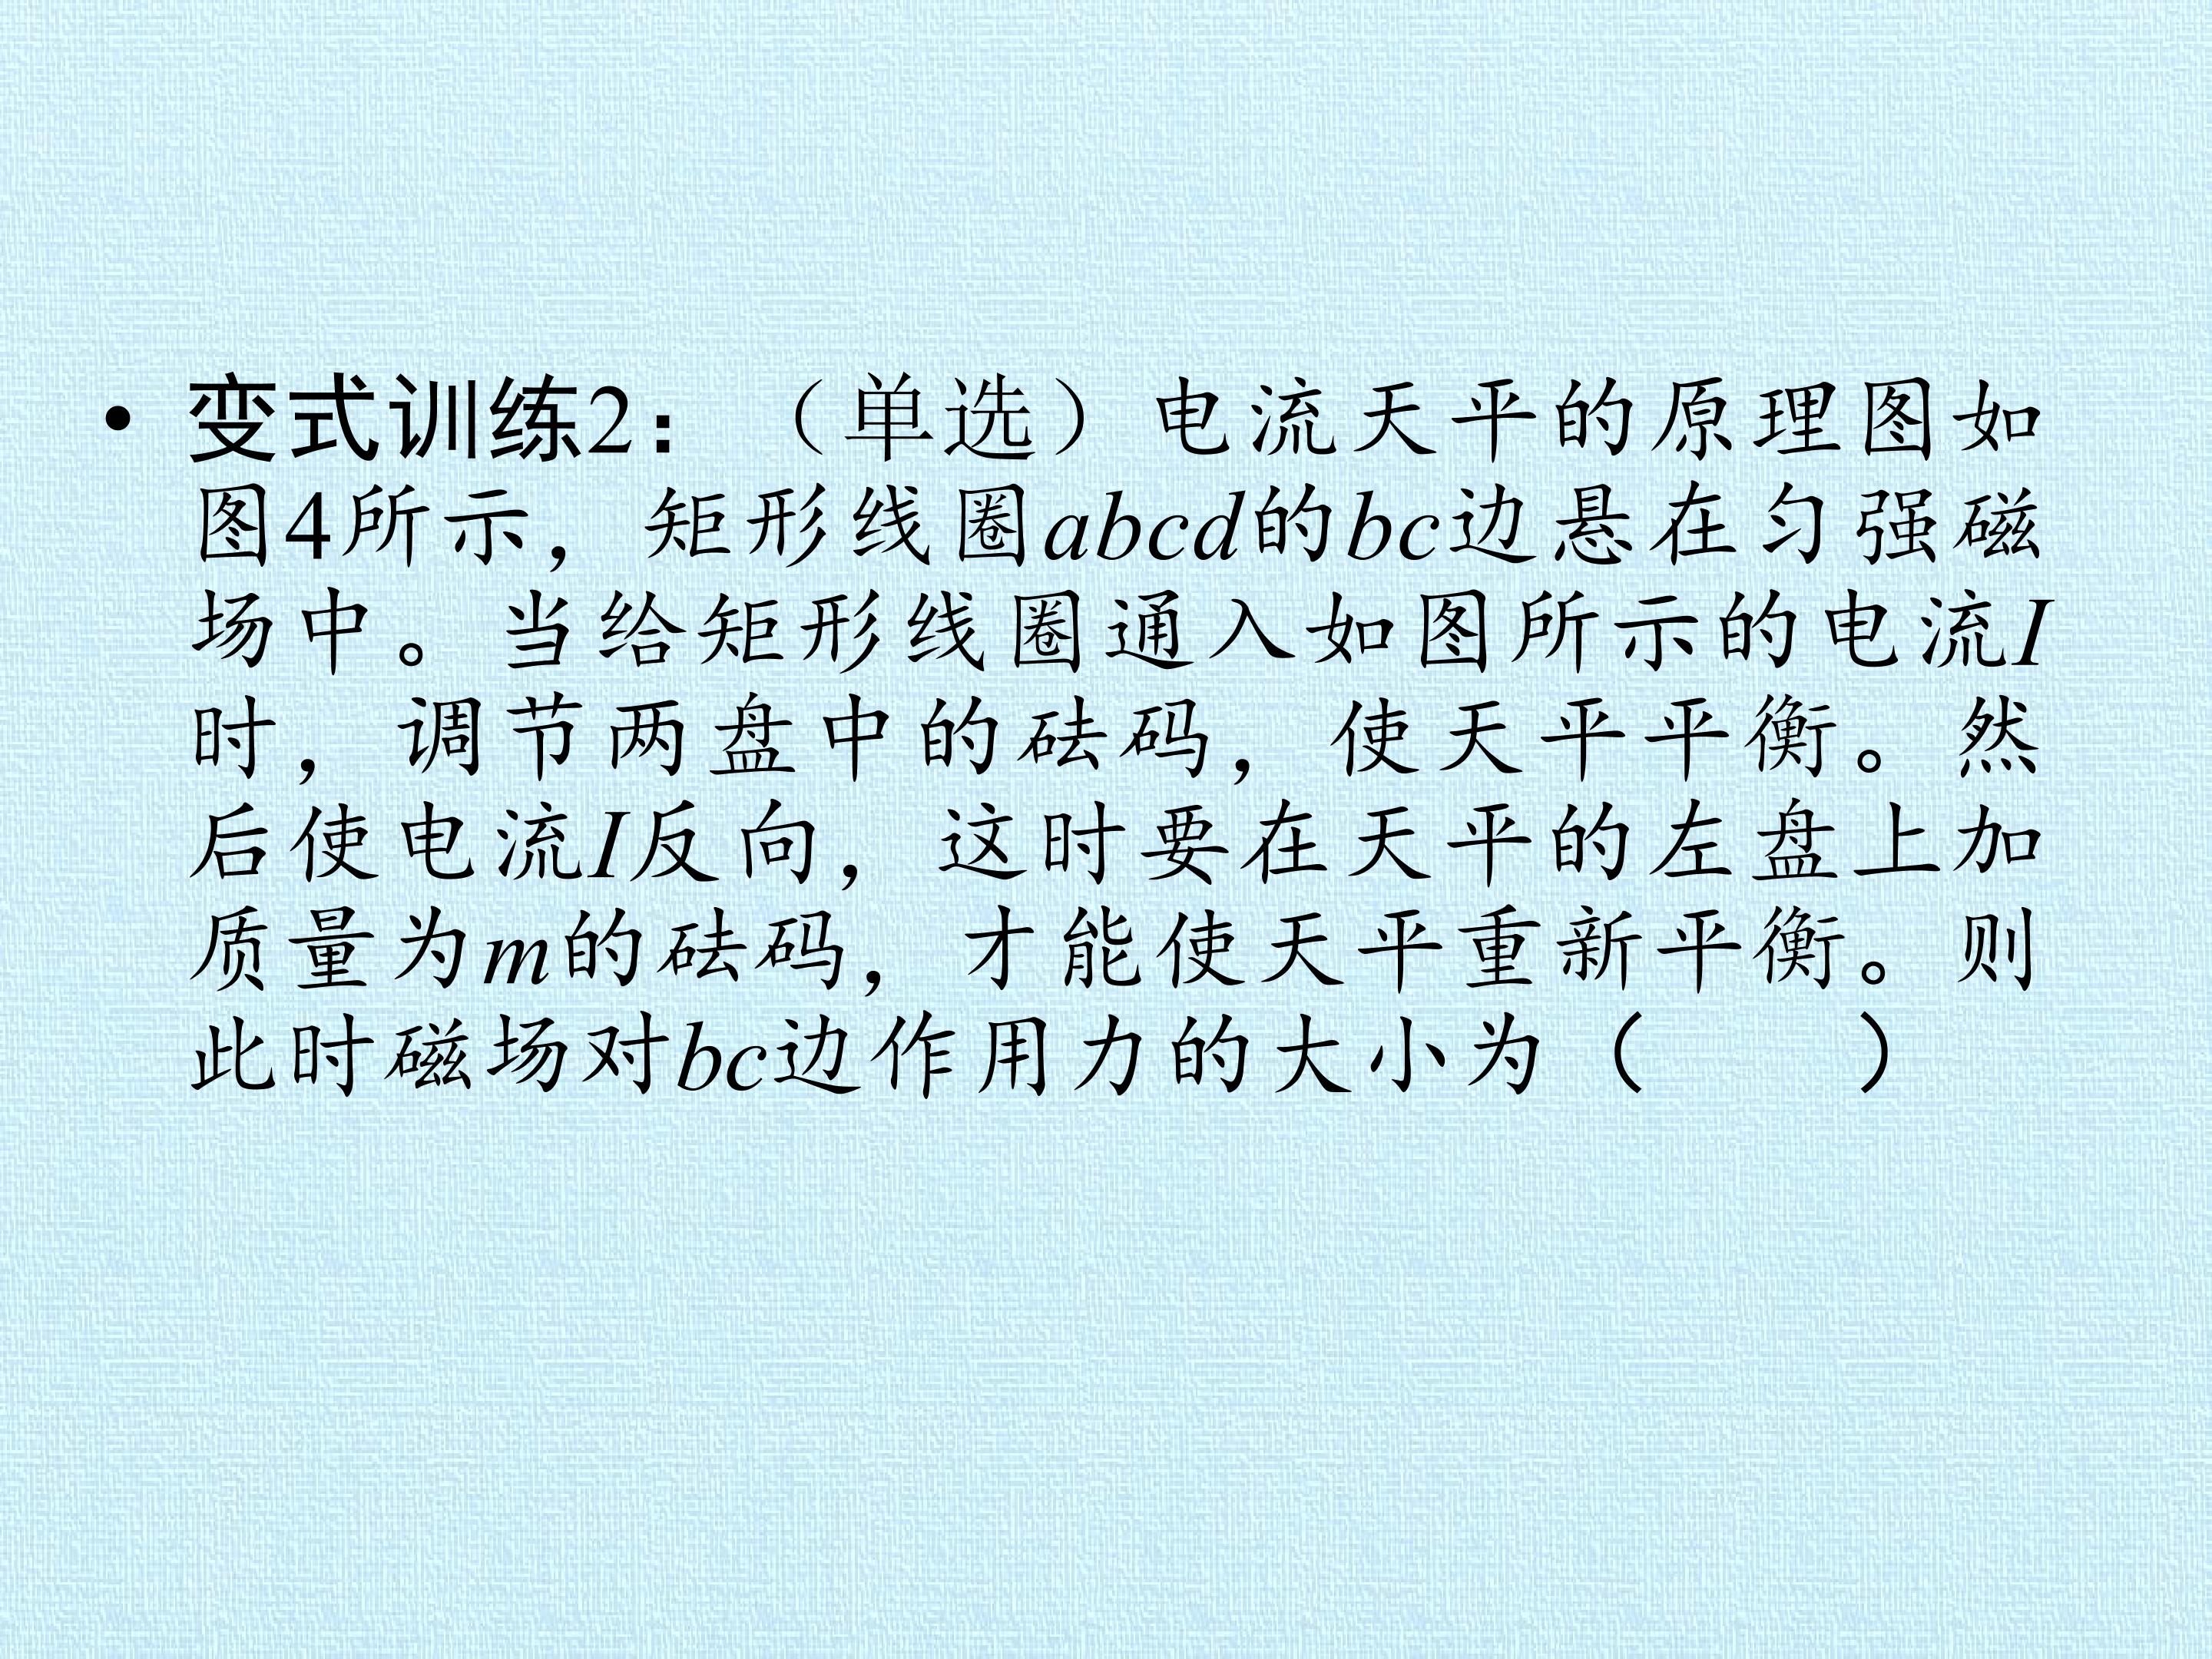 • 变式训练2：（单选）电流天平的原理图如
图4所示，矩形线圈abcd的bc边悬在匀强磁
场中。当给矩形线圈通入如图所示的电流I
时，调节两盘中的砝码，使天平平衡。然
后使电流I反向，这时要在天平的左盘上加
质量为m的砝码，才能使天平重新平衡。则
此时磁场对bc边作用力的大小为（　　）